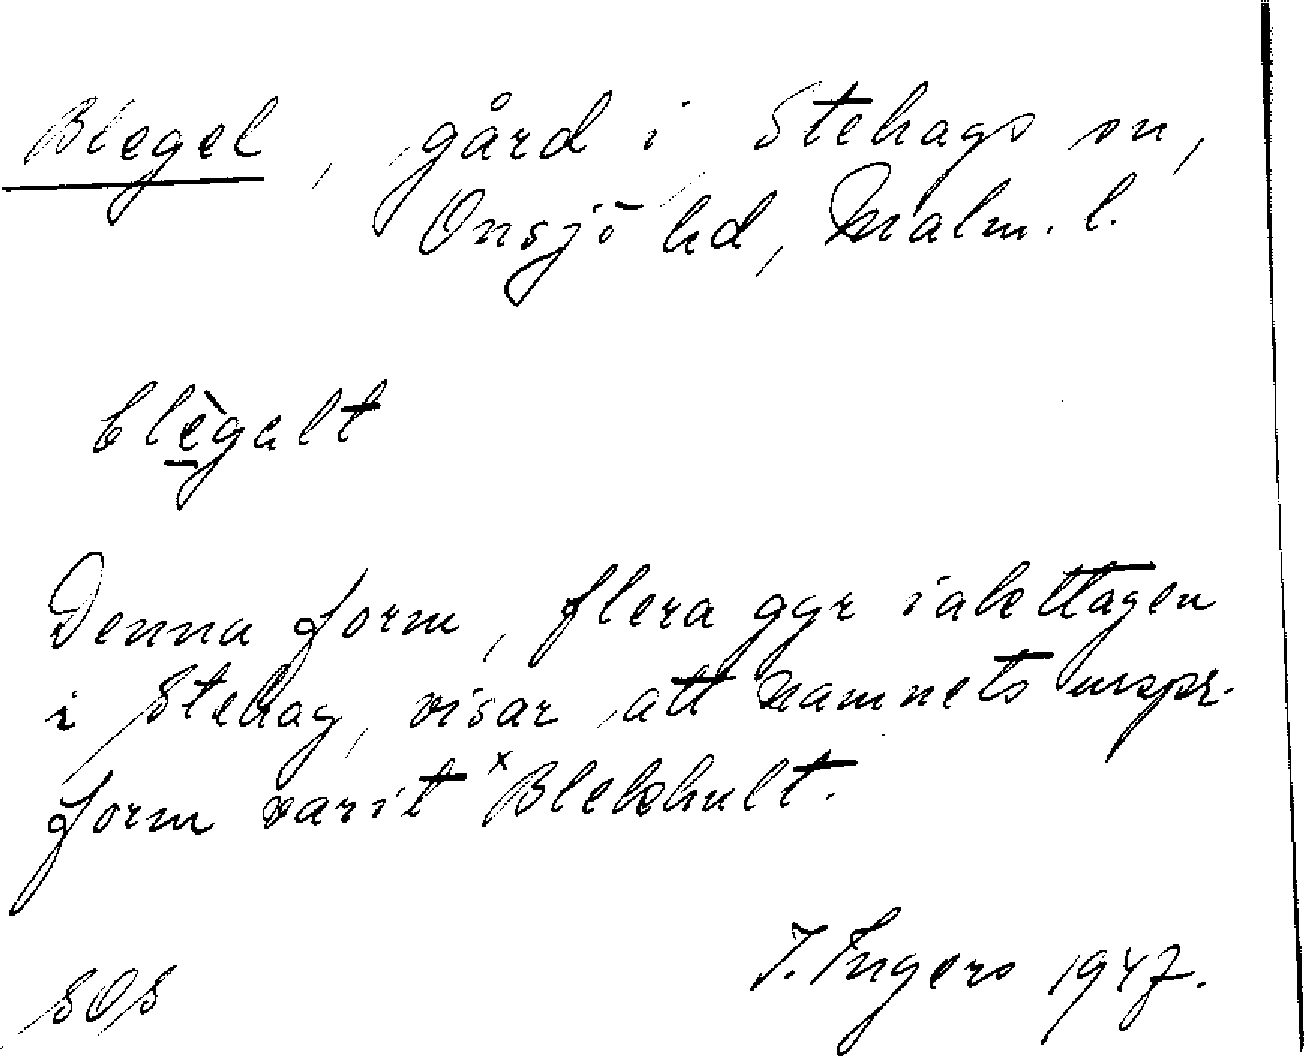 Blegel, gård i Stehags sn,
Onsjö hd, Malm. l.
blègalt
Denna form, flera ggr iakttagen
i Stehag, visar att namnets urspr.
form varit ˣBlekhult.
I. Ingers 1947.
SOS